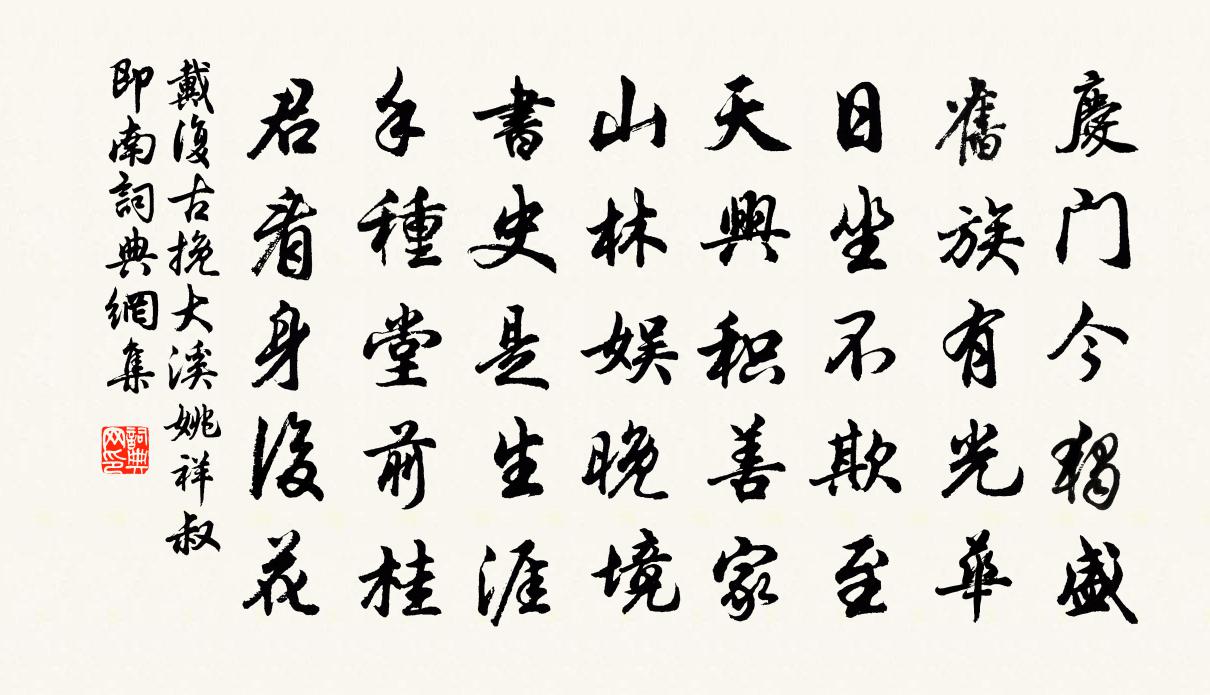 慶门今獨盛
舊族有光華
日坐不欺至
天興积善家
山林娱晚境
書史是生涯
手種堂前桂
君看身後花
戴復古挽大溪姚祥叔
即南詞典網集
詞典
网印